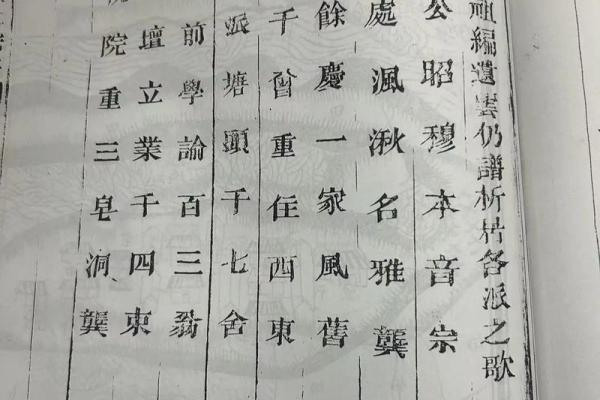 祖編遺雲仍譜析片各派之歌
公昭穆本音宗
處渢湫名雅龔
餘慶一家風舊
千曾重任西東
派塘頭千七舍
前學諭百三翁
壇立業千四東
院重三皂洞龔